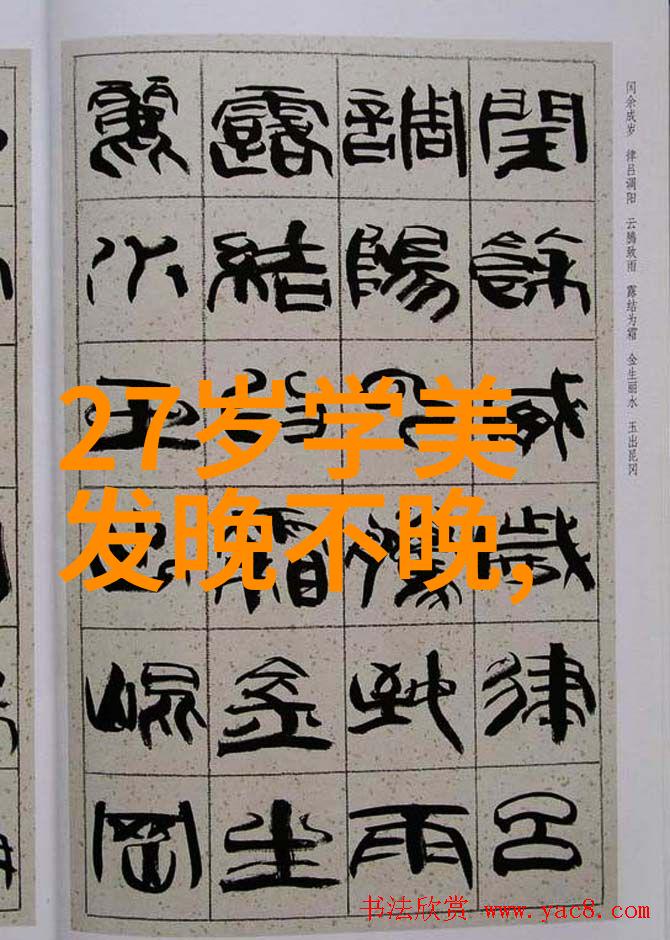 27岁学美
发晚不晚,
闰余成岁 律吕调阳 云腾致雨 露结为霜 金生丽水 玉出昆冈
閏餘成歲律呂
調陽云騰致雨
露結為霜金生
麗水玉出崐岡
书法欣赏 www.yac8.com